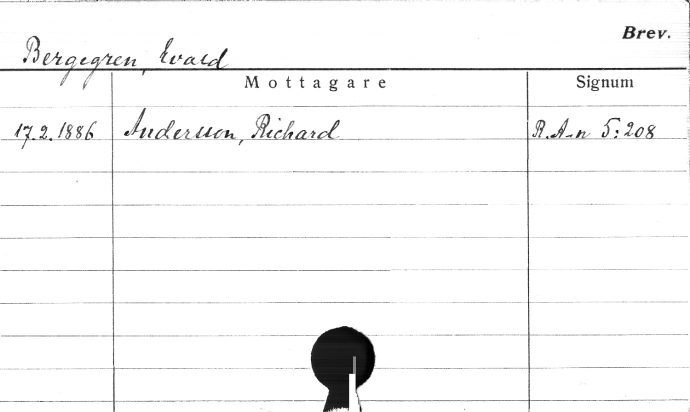 Brev.
Bergegren, Evald
Mottagare Signum
17.2.1886 Andersson, Richard R.A-n 5:208